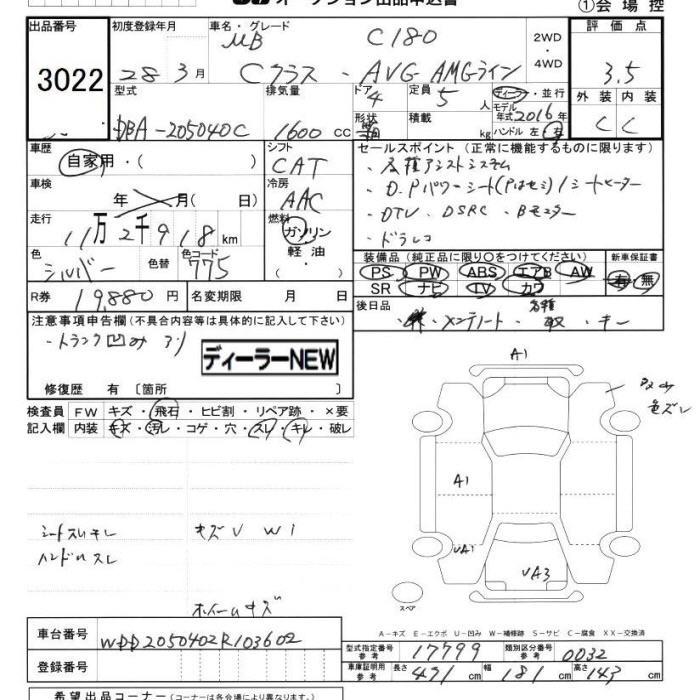 オークション出品申込書
①会場控
出品番号
3022
初度登録年月
28年3月
車名・グレード
MB C180
Cクラス・AVG AMGライン
2WD
・
4WD
評価点
3.5
外装 内装
C C
型式
DBA-205040C
排気量
1600cc
ドア
4
形状
定員
5人
積載
kg
ディーラー・並行
モデル年式 2016年
ハンドル 左・右
車歴
自家用・( )
シフト
CAT
セールスポイント(正常に機能するものに限ります)
・各種アシストシステム
・D.Pパワーシート(Pはセミ)/シートヒーター
・DTV . DSRC . Bモニター
・ドラレコ
車検
年 月( 日)
冷房
AAC
走行
11万2千918km
燃料
ガソリン
軽油
・
色
シルバー
色替
色コード
775
装備品(純正品に限り○をつけてください)
PS PW ABS エアB AW
SR ナビ TV カワ
新車保証書
有・無
R券 19,880円
名変期限 月 日
後日品
・メンテノート・取・キー
各種
注意事項申告欄(不具合内容等は具体的に記入して下さい)
・トランク凹みあり
ディーラーNEW
修復歴 有〔箇所 〕
検査員
記入欄
FW キズ・飛石・ヒビ割・リペア跡・×要
内装 キズ・汚レ・コゲ・穴・スレ・キレ・破レ
シートスレキレ
ハンドルスレ
キズV W1
ホイールキズ
A1
A1
UA1
UA3
色ズレ
スペア
A-キズ E-エクボ U-凹み W-補修跡 S-サビ C-腐食 XX-交換済
車台番号
WDD2050402R103602
登録番号
型式指定番号
参考
17799
類別区分番号
参考
0032
車庫証明用
参考
長さ 471cm
幅 181cm
高さ 143cm
希望出品コーナー(コーナーは各会場により異なります)